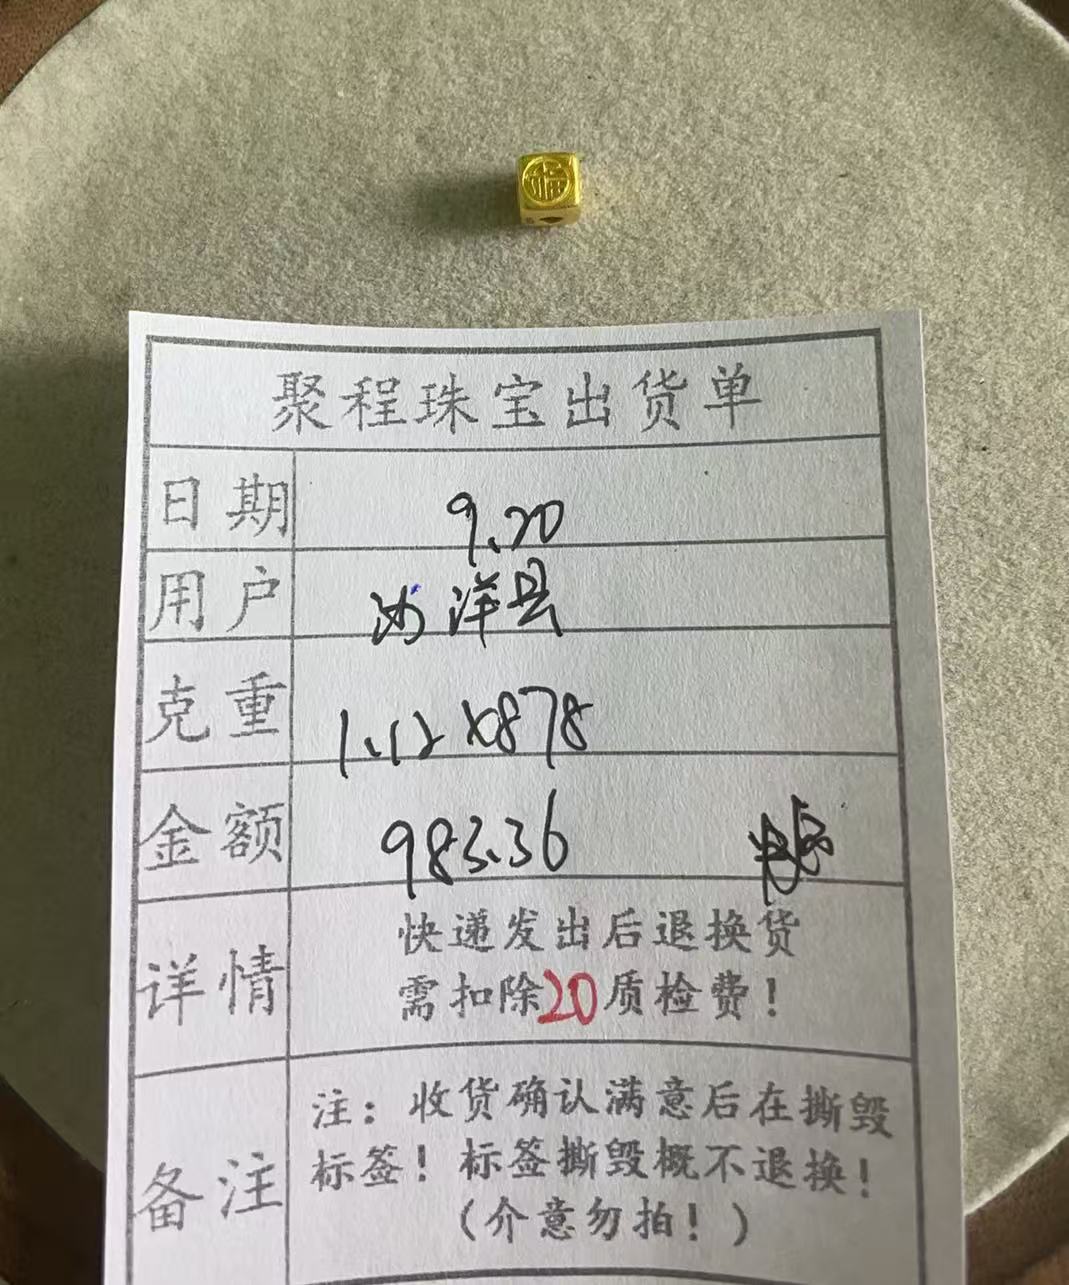 福
聚程珠宝出货单
日期 9.20
用户 沙洋县
克重 1.12×878
金额 983.36
详情 快递发出后退换货
需扣除20质检费！
备注 注：收货确认满意后在撕毁
标签！标签撕毁概不退换！
（介意勿拍！）